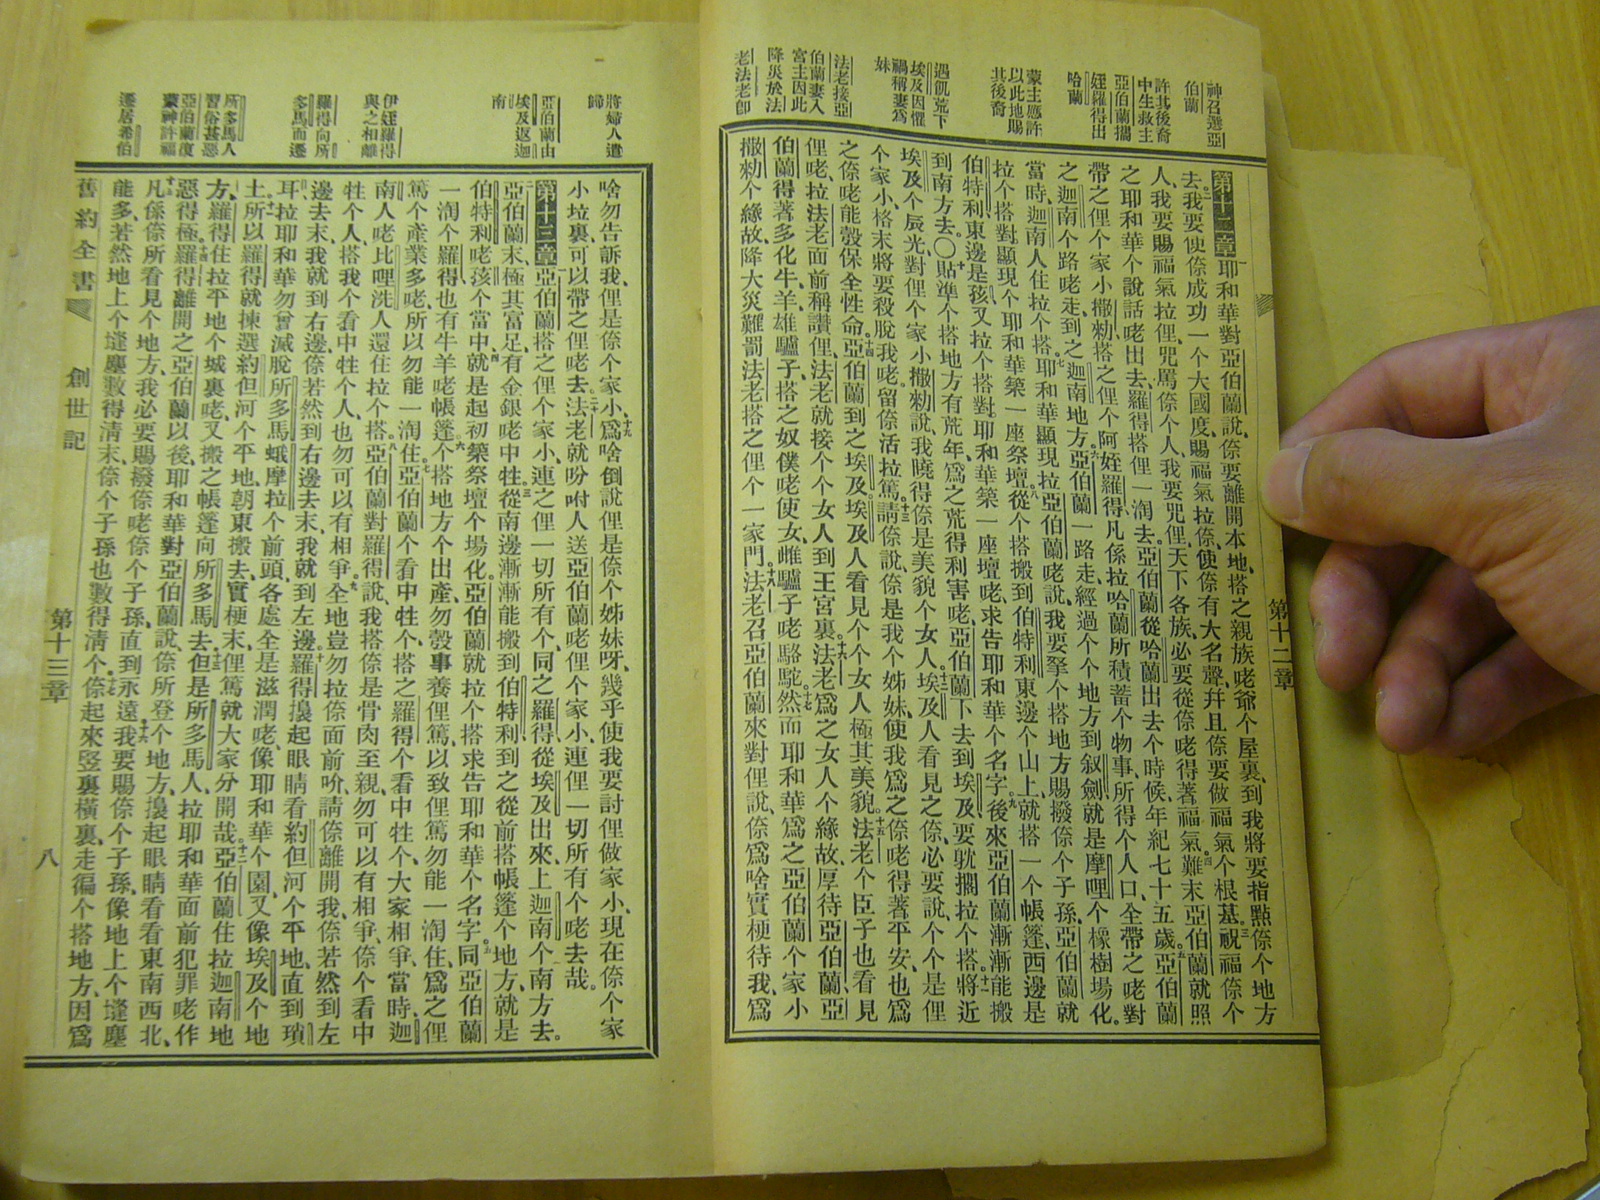 神召選亞
伯蘭
許其後裔
中生救主
亞伯蘭攜
姪羅得出
哈蘭
蒙主應許
以此地賜
其後裔
遇飢荒下
埃及因懼
禍稱妻爲
妹
法老接亞
伯蘭妻入
宮主因此
降災於法
老法老卽
第十二章耶和華對亞伯蘭說、㑚要離開本地、搭之親族咾爺个屋裏、到我將要指點㑚个地方
去。二我要使㑚成功一个大國度、賜福氣拉㑚、使㑚有大名聲、幷且㑚要做福氣个根基。三祝福㑚个
人、我要賜福氣拉俚、咒罵㑚个人、我要咒俚、天下各族、必要從㑚咾得著福氣難末。四亞伯蘭就照
之耶和華个說話咾出去、羅得搭俚一淘去。亞伯蘭從哈蘭出去个時候、年紀七十五歲。五亞伯蘭
帶之俚个家小撒勑、搭之俚个阿姪羅得、凡係拉哈蘭所積蓄个物事、所得个人口、全帶之咾對
之迦南个路咾走、到之迦南地方。六亞伯蘭一路走、經過个个地方、到叙劍、就是摩哩个橡樹場化。
當時迦南人住拉个搭。七耶和華顯現拉亞伯蘭咾說、我要拏个搭地方賜撥㑚个子孫、亞伯蘭就
拉个搭、對顯現个耶和華築一座祭壇。八從个搭搬到伯特利東邊个山上、就搭一个帳篷、西邊是
伯特利、東邊是孩、又拉个搭對耶和華築一座壇咾求告耶和華个名字。九後來亞伯蘭漸漸能搬
到南方去。〇十貼準个搭地方有荒年、爲之荒得利害咾、亞伯蘭下去到埃及、要躭擱拉个搭。十一將近
埃及个辰光、對俚个家小撒勑說、我曉得㑚是美貌个女人、十二埃及人看見之㑚、必要說、个个是俚
个家小、格末將要殺脫我咾、留㑚活拉篤。十三請㑚說、㑚是我个姊妹、使我爲之㑚咾得著平安、也爲
之㑚咾能彀保全性命。十四亞伯蘭到之埃及、埃及人看見个个女人極其美貌。十五法老个臣子也看見
俚咾、拉法老面前稱讚俚、法老就接个个女人到王宮裏。十六法老爲之女人个緣故、厚待亞伯蘭、亞
伯蘭得著多化牛、羊、雄驢子、搭之奴僕咾使女、雌驢子咾駱駝。十七然而耶和華爲之亞伯蘭个家小
撒勑个緣故、降大災難罰法老搭之俚个一家門。十八法老召亞伯蘭來對俚說、㑚爲啥實梗待我、爲
第十二章
將婦人遣
歸
亞伯蘭由
埃及返迦
南
伊姪羅得
與之相離
羅得向所
多馬而遷
所多馬人
習俗甚惡
亞伯蘭復
蒙神許福
遷居希伯
啥勿告訴我、俚是㑚个家小。十九爲啥倒說俚是㑚个姊妹呀、幾乎使我要討俚做家小、現在㑚个家
小垃裏、可以帶之俚咾去。二十法老就吩咐人送亞伯蘭咾俚个家小、連俚一切所有个咾去哉。
第十三章亞伯蘭搭之俚个家小、連之俚一切所有个、同之羅得、從埃及出來、上迦南个南方去。
亞伯蘭末、極其富足、有金銀咾中牲。三從南邊漸漸能搬到伯特利、到之從前搭帳篷个地方、就是
伯特利咾孩个當中、四就是起初築祭壇个場化、亞伯蘭就拉个搭求告耶和華个名字。五同亞伯蘭
一淘个羅得、也有牛羊咾帳篷。六个搭地方个出產、勿彀事養俚篤、以致俚篤勿能一淘住、爲之俚
篤个產業多咾、所以勿能一淘住。七亞伯蘭个看中牲个、搭之羅得个看中牲个、大家相爭、當時、迦
南人咾比哩洗人還住拉个搭。八亞伯蘭對羅得說、我搭㑚是骨肉至親、勿可以有相爭、㑚个看中
牲个人、搭我个看中牲个人、也勿可以有相爭。九全地豈勿拉㑚面前吤、請㑚離開我、㑚若然到左
邊去末、我就到右邊、㑚若然到右邊去末、我就到左邊。十羅得擡起眼睛、看約但河个平地、直到瑣
耳、拉耶和華勿曾滅脫所多馬蛾摩拉个前頭、各處全是滋潤咾、像耶和華个園、又像埃及个地
土。十一所以羅得就揀選約但河个平地、朝東搬去、實梗末、俚篤就大家分開哉。十二亞伯蘭住拉迦南地
方、羅得住拉平地个城裏咾、又搬之帳篷向所多馬去。十三但是所多馬人、拉耶和華面前犯罪咾作
惡得極。十四羅得離開之亞伯蘭以後、耶和華對亞伯蘭說、㑚所登个地方、擡起眼睛看看東南西北、
凡係㑚所看見个地方、我必要賜撥㑚咾㑚个子孫、直到永遠。十六我要賜㑚个子孫、像地上个塳塵
能多、若然地上个塳塵數得淸末、㑚个子孫也數得淸个。十七㑚起來豎裏橫裏、走徧个搭地方、因爲
舊約全書
創世記
第十三章
八